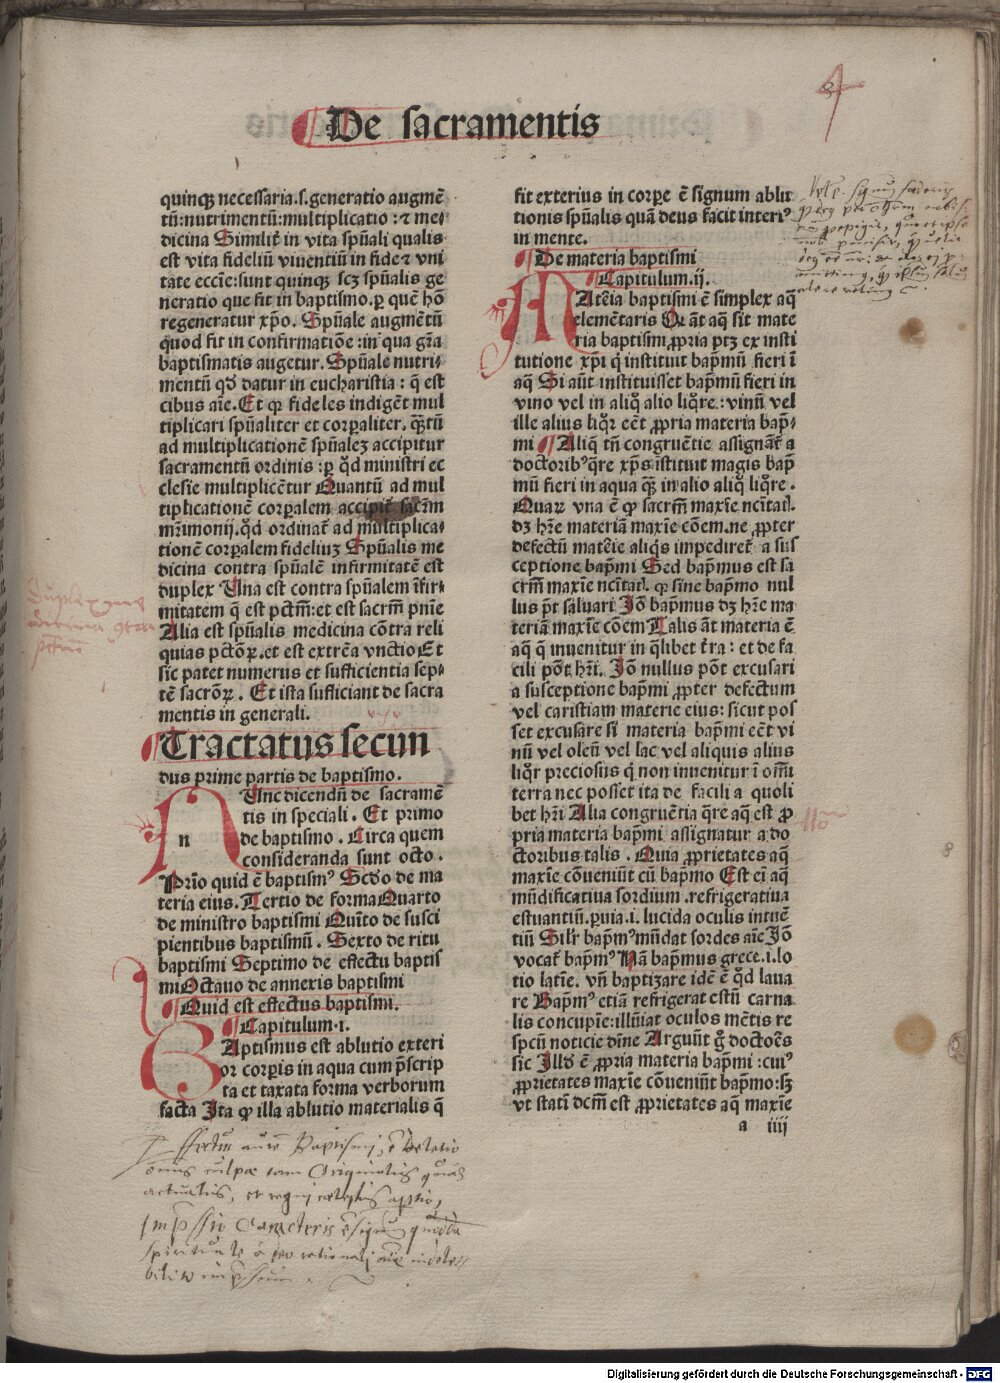 De sacramentis
quinqꝫ necessaria.s.generatio augmē
tū:nutrimentū:multiplicatio:⁊ me⸗
dicina Similiť in vita spūali qualis
est vita fidelíū viuentiū in fide⁊ vni
tate eccīe:sunt quinqꝫ scꝫ spūalis ge
neratio que fit in baptismo.ꝑ quē hō
regeneratur xp̄o. Spūale augmētū
quod fit in confirmatiōe:in qua gr̄a
baptismatis augetur. Spūale nutri⸗
mentū qd̄ datur in eucharistia: q̄ est
cibus aīe. Et qꝛ fideles indigēt mul
tiplicari spūaliter et corꝑaliter. qꝫtū
ad multiplicationē spūaleꝫ accipitur
sacramentū ordinis:ꝑ qd̄ ministri ec
clesie multiplicētur Quantū ad mul
tiplicationē corꝑalem accipiť sacr̄m
mr̄imonij.qd̄ ordinať ad multiplica⸗
tionē corꝑalem fideliuꝫ Spūalis me
dicina contra spūalē infirmitatē est
duplex Una est contra spūalem īfir⸗
mitatem q̄ est pctm̄:et est sacr̄m pn̄ie
Alia est spūalis medicina cōtra reli
quias pctōꝝ.et est extrēa vnctio Et
sic patet numerus et sufficientia sep⸗
tē sacrōꝝ. Et ista sufficiant de sacra
mentis in generali.
Tractatus secun
dus prime partis de baptismo.
n
Unc dicendū de sacramē
tis in speciali. Et primo
de baptismo. Circa quem
consideranda sunt octo.
Prīo quid ē baptism⁹ Scd̄o de ma
teria eius. Tertio de forma Quarto
de ministro baptismi Quīto de susci
pientibus baptismū. Sexto de ritu
baptismi Septimo de effectu baptis
mi Octauo de annexis baptismi
Quid est effectus baptismi.
Capitulum.i.
BAptismus est ablutio exteri
or corꝑis in aqua cum p̄scrip
ta et taxata forma verborum
facta Ita ꝙ illa ablutio materialis q̄
fit exterius in corpe ē signum ablu
tionis spūalis quā deus facit interi⁹
in mente.
De materia baptismi
Capitulum.ij.
MAtēia baptismi ē simplex aq̄
elemētaris Qꝛ āt aq̄ sit mate
ria baptismi ꝓpria ptꝫ ex insti
tutione xp̄i q̇ instituit bap̄mū fieri ī
aq̄ Si aūt instituisset bap̄mū fieri in
vino vel in aliq̊ alio liq̊re:vinū vel
ille alius liq̊r eēt ꝓpria materia bap̄⸗
mi Aliq̄ tn̄ congruētie assignāť a
doctorib⁹ q̄re xp̄s īstituit magis bap̄
mū fieri in aqua qꝫ in alio aliq̊ liq̊re.
Quaꝝ vna ē ꝙ sacrm̄ maxīe nc̄itatl.
dꝫ hr̄e materiā maxīe cōem.ne ꝓpter
defectū matēie aliq̇s impedireť a sus
ceptione bap̄mi Sed bap̄mus est sa
crm̄ maxīe nc̄itatl. qꝛ sine bap̄mo nul
lus p̄t saluari Iō bap̄mus dꝫ hr̄e ma
teriā maxīe cōem Talis āt materia ē
aq̄ q̄ inuenitur in q̄libet tr̄a: et de fa
cili pōt hr̄i. Iō nullus pōt excusari
a susceptione bap̄mi ꝓpter defectum
vel caristiam materie eius: sicut pos
set excusare si materia bap̄mi eēt vi
nū vel oleū vel lac vel aliquis alius
liq̊r preciosus q̇ non inuenitur ī om̄i
terra nec posset ita de facili a quoli
bet hr̄i Alia congruētia q̄re aq̄ est ꝓ
pria materia bap̄mi assignatur a do
ctoribus talis. Quia ꝓprietates aq̄
maxīe cōueniūt cū bap̄mo Est eī aq̄
mūdificatiua sordium.refrigeratiua
estuantiū.ꝑuia.i. lucida oculis intuē
tiū Silr̄ bap̄m⁹ mūdat sordes aīe Iō
vocať bap̄m⁹ Nā bap̄mus grece.i.lo
tio latīe. vn̄ baptizare idē ē qd̄ laua
re Bap̄m⁹ etiā refrigerat estū carna
lis concupīe:illūīat oculos mētis re
spcū noticie dīne Arguūt g̊ doctoēs
sic Illd̄ ē ꝓpria materia bap̄mi :cui⁹
ꝓprietates maxīe cōueniūt bap̄mo:sꝫ
vt statī dcm̄ est ꝓprietates aq̄ maxīe
a iiij
Effectus Baptismi
omnis culpae tam Originalis
actualis, et regni
Impssio Caracteris
Digitalisierung gefördert durch die Deutsche Forschungsgemeinschaft - DFG